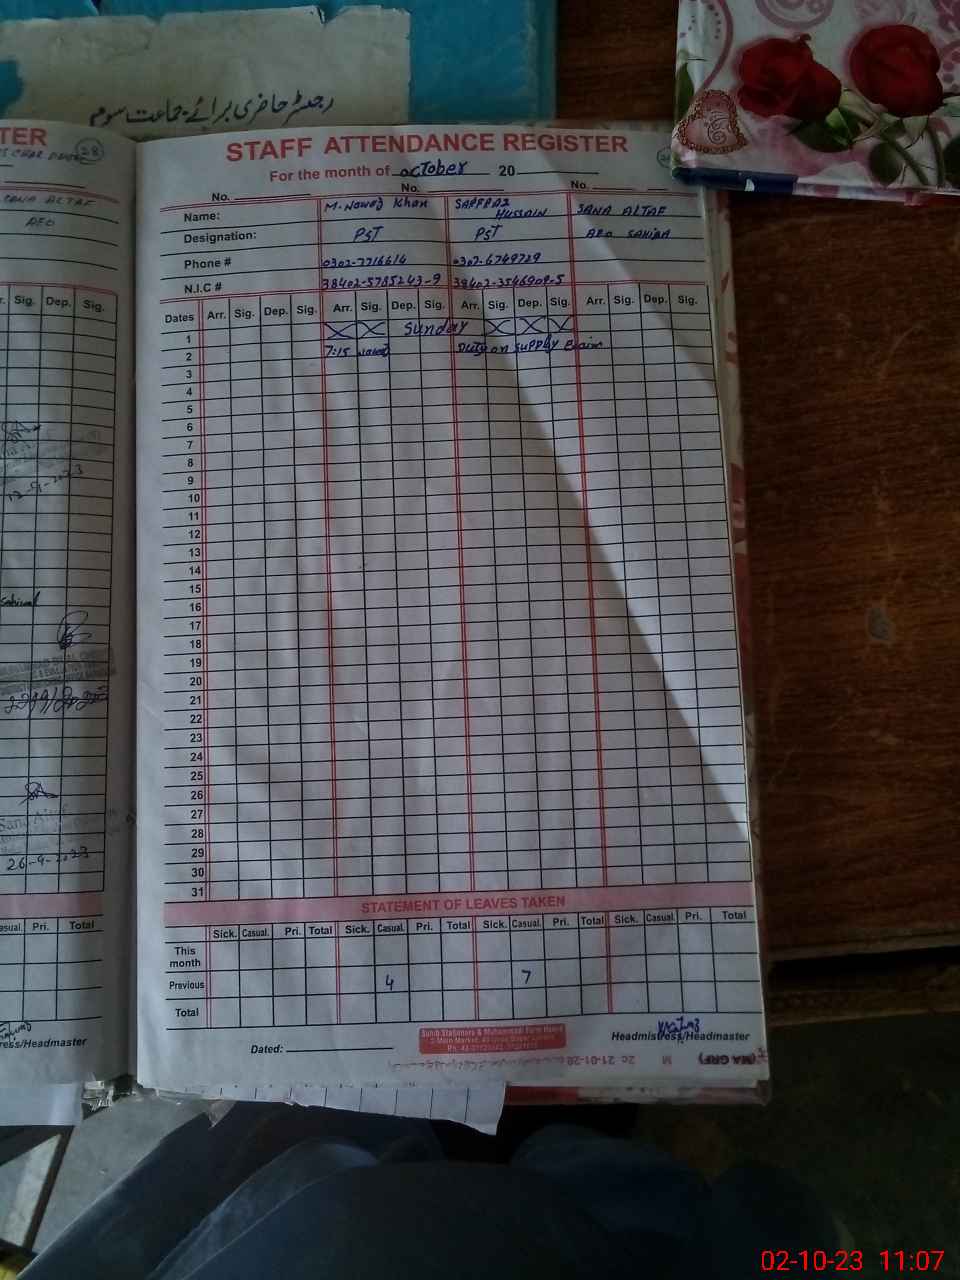 رجسٹر حاضری برائے جماعت سوم
TER
28
STAFF ATTENDANCE REGISTER
For the month of October 20
No. No. No.
Name: M. Nawaz Khan SARFRAZ HUSSAIN SANA ALTAF
Designation: PST PST AEO SAHIBA
Phone # 0302-7716614 0307-6749729
N.I.C # 38402-5785243-9 38402-3546908-5
SANA ALTAF
AEO
Dates Arr. Sig. Dep. Sig. Arr. Sig. Dep. Sig. Arr. Sig. Dep. Sig. Arr. Sig. Dep. Sig.
r. Sig. Dep. Sig.
1 Sunday
2 7:15 Nawaz Duty on Supply Exam
3
4
5
6
7
8
9
10
11
12
13
14
15
16
17
18
19
20
21
22
23
24
25
26
27
28
29
30
31
Sahiwal
Sana Altaf
26-9-2023
STATEMENT OF LEAVES TAKEN
Sick. Casual. Pri. Total Sick. Casual. Pri. Total Sick. Casual. Pri. Total Sick. Casual. Pri. Total
asual. Pri. Total
This month
Previous 4 7
Total
Dated:
Headmistress/Headmaster
ress/Headmaster
(MA GRF)
02-10-23 11:07